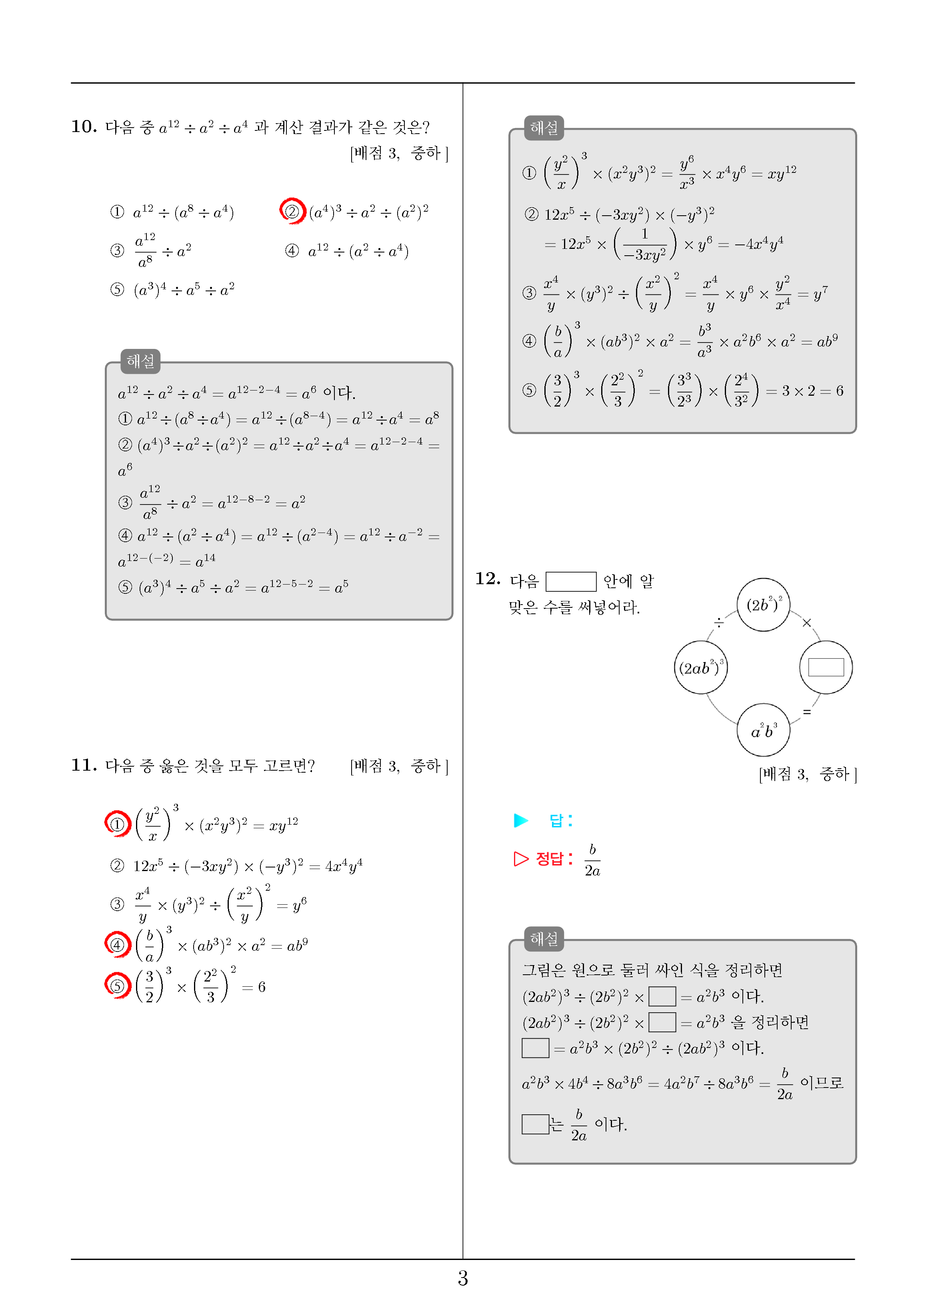 10. 다음 중 a¹² ÷ a² ÷ a⁴ 과 계산 결과가 같은 것은?
[배점 3, 중하]
① a¹² ÷ (a⁸ ÷ a⁴) ② (a⁴)³ ÷ a² ÷ (a²)²
③ a¹²/a⁸ ÷ a² ④ a¹² ÷ (a² ÷ a⁴)
⑤ (a³)⁴ ÷ a⁵ ÷ a²
해설
a¹² ÷ a² ÷ a⁴ = a¹²⁻²⁻⁴ = a⁶ 이다.
① a¹² ÷ (a⁸ ÷ a⁴) = a¹² ÷ (a⁸⁻⁴) = a¹² ÷ a⁴ = a⁸
② (a⁴)³ ÷ a² ÷ (a²)² = a¹² ÷ a² ÷ a⁴ = a¹²⁻²⁻⁴ =
a⁶
③ a¹²/a⁸ ÷ a² = a¹²⁻⁸⁻² = a²
④ a¹² ÷ (a² ÷ a⁴) = a¹² ÷ (a²⁻⁴) = a¹² ÷ a⁻² =
a¹²⁻⁽⁻²⁾ = a¹⁴
⑤ (a³)⁴ ÷ a⁵ ÷ a² = a¹²⁻⁵⁻² = a⁵
11. 다음 중 옳은 것을 모두 고르면? [배점 3, 중하]
① (y²/x)³ × (x²y³)² = xy¹²
② 12x⁵ ÷ (−3xy²) × (−y³)² = 4x⁴y⁴
③ x⁴/y × (y³)² ÷ (x²/y)² = y⁶
④ (b/a)³ × (ab³)² × a² = ab⁹
⑤ (3/2)³ × (2²/3)² = 6
해설
① (y²/x)³ × (x²y³)² = y⁶/x³ × x⁴y⁶ = xy¹²
② 12x⁵ ÷ (−3xy²) × (−y³)²
= 12x⁵ × (1/−3xy²) × y⁶ = −4x⁴y⁴
③ x⁴/y × (y³)² ÷ (x²/y)² = x⁴/y × y⁶ × y²/x⁴ = y⁷
④ (b/a)³ × (ab³)² × a² = b³/a³ × a²b⁶ × a² = ab⁹
⑤ (3/2)³ × (2²/3)² = (3³/2³) × (2⁴/3²) = 3 × 2 = 6
12. 다음 □ 안에 알
맞은 수를 써넣어라.
(2b²)²
÷ ×
(2ab²)³ □
=
a²b³
[배점 3, 중하]
▶ 답 :
▷ 정답 : b/2a
해설
그림은 원으로 둘러 싸인 식을 정리하면
(2ab²)³ ÷ (2b²)² × □ = a²b³ 이다.
(2ab²)³ ÷ (2b²)² × □ = a²b³ 을 정리하면
□ = a²b³ × (2b²)² ÷ (2ab²)³ 이다.
a²b³ × 4b⁴ ÷ 8a³b⁶ = 4a²b⁷ ÷ 8a³b⁶ = b/2a 이므로
□는 b/2a 이다.
3